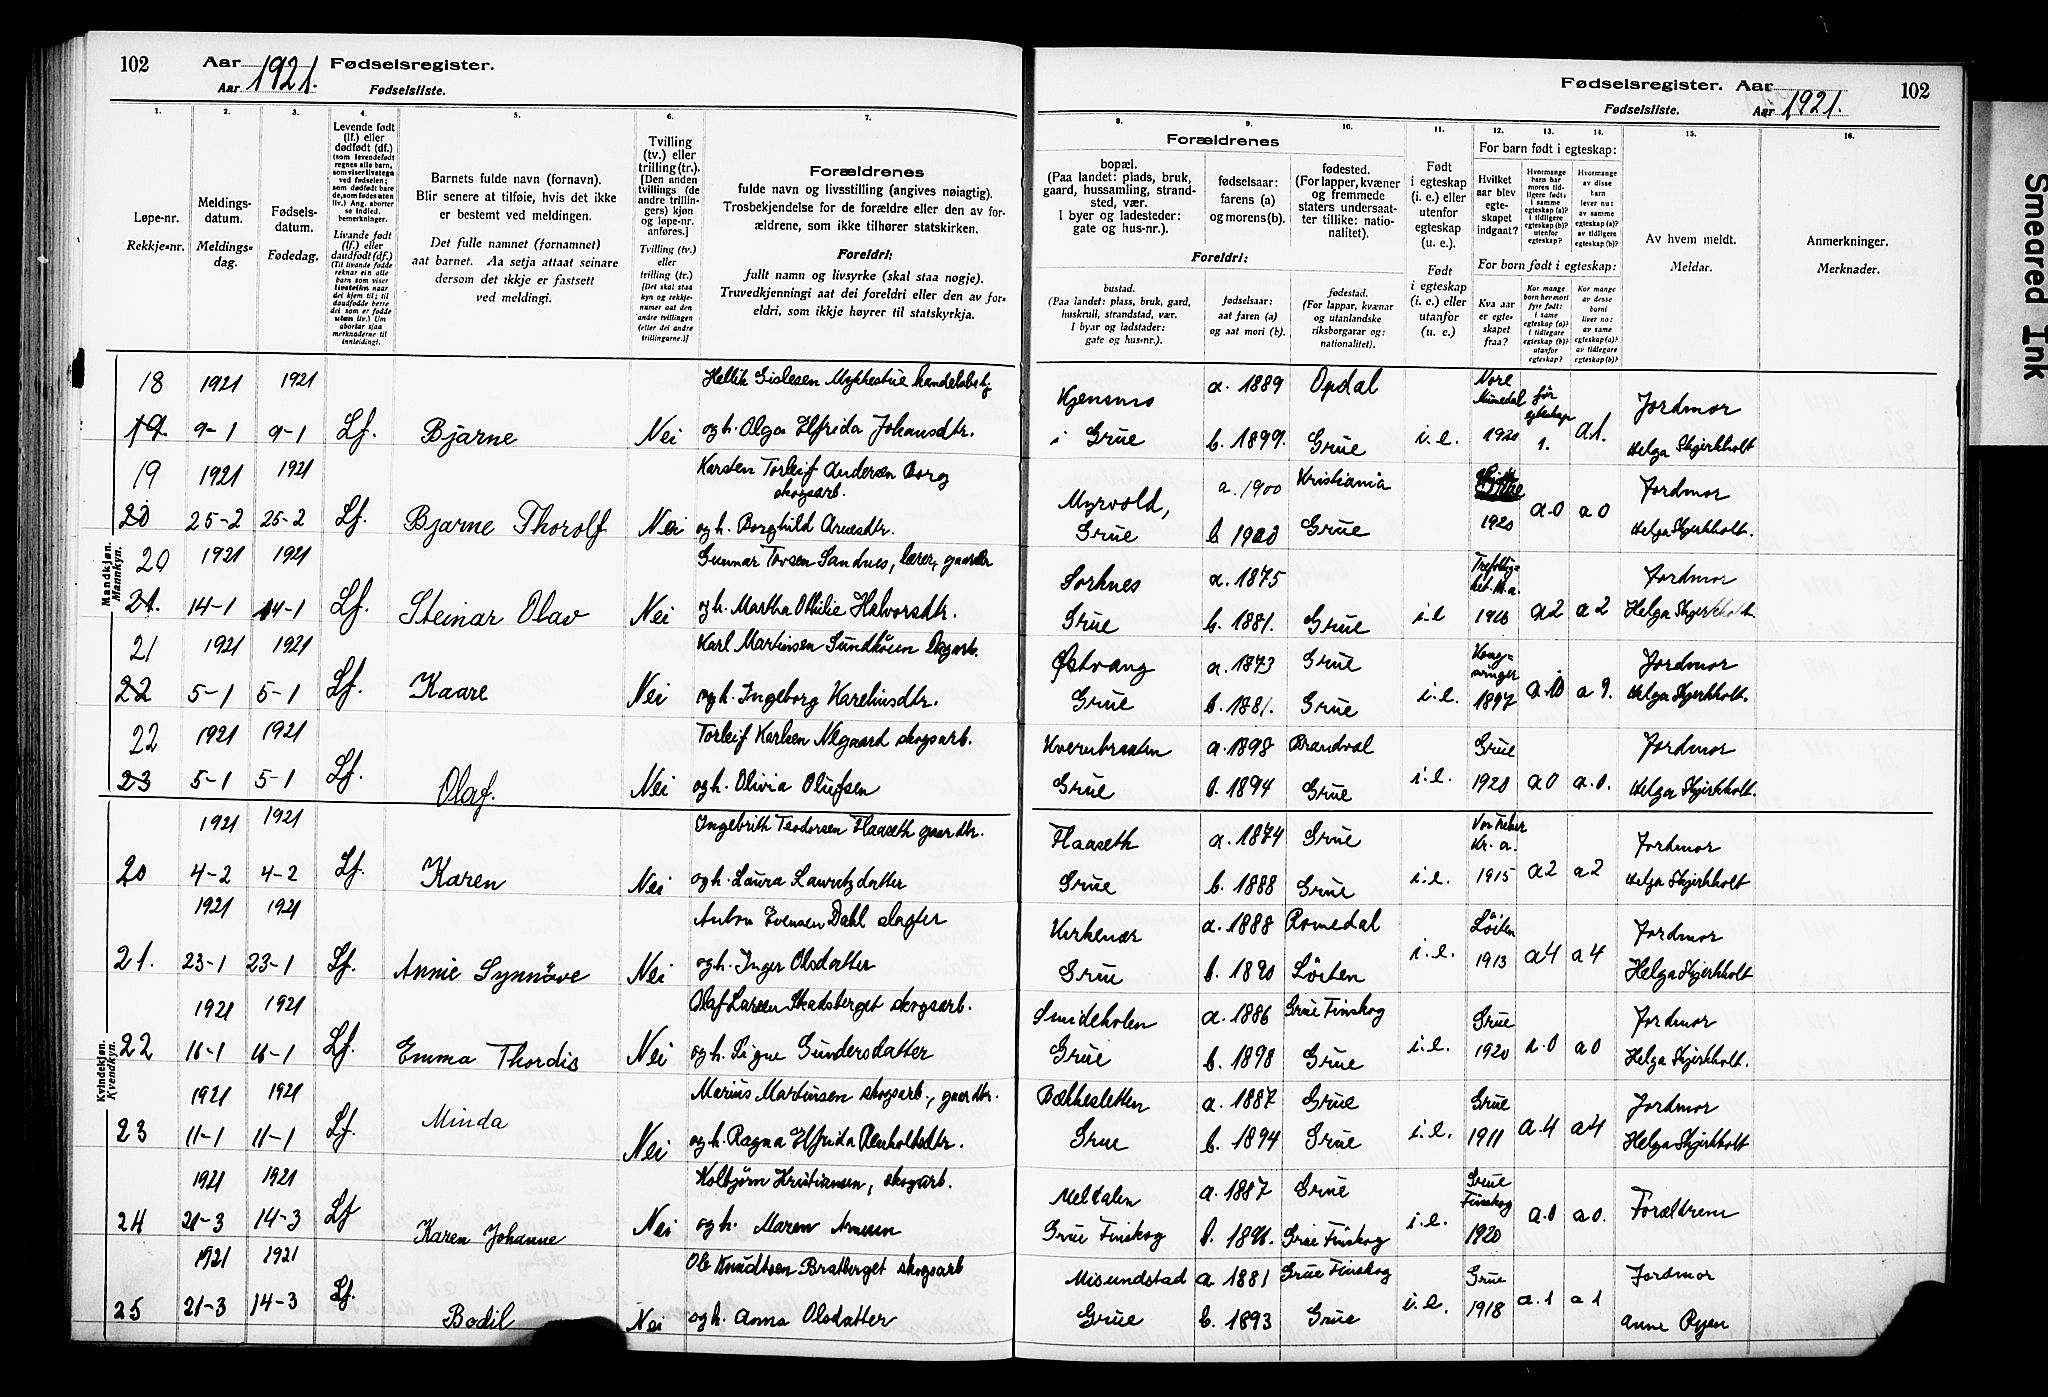 102 Aar 1921. Fødselsregister.
Aar Fødselsliste.
Fødselsregister. Aar 102
Fødselsliste. Aar 1921.
1. 2. 3. 4. 5. 6. 7. 8. 9. 10. 11. 12. 13. 14. 15. 16.
Løpe-nr.
Rekkje-nr.
Meldings-
datum.
Meldings-
dag.
Fødsels-
datum.
Fødedag.
Levende født
(lf.) eller
dødfødt (df.)
Livande født
(lf.) eller
daudfødt (df.)
Barnets fulde navn (fornavn).
Blir senere at tilføie, hvis det ikke
er bestemt ved meldingen.
Det fulle namnet (fornamnet)
aat barnet. Aa setja attaat seinare
dersom det ikkje er fastsett
ved meldingi.
Tvilling
(tv.) eller
trilling (tr.).
[Den anden
tvillings (de
andre trillin-
gers) kjøn
og løpe-nr.
anføres.]
Tvilling (tv.)
eller
trilling (tr.)
[Det skal staa
kyn og rekkje-
numer aat den
andre tvillingen
(eller dei andre
trillingarne.)]
Forældrenes
fulde navn og livsstilling (angives nøiagtig).
Trosbekjendelse for de forældre eller den av for-
ældrene, som ikke tilhører statskirken.
Foreldri:
fullt namn og livsyrke (skal staa nøgje).
Truvedkjenningi aat dei foreldri eller den av for-
eldri, som ikkje høyrer til statskyrkja.
Forældrenes
bopæl.
(Paa landet: plads, bruk,
gaard, hussamling, strand-
sted, vær.
I byer og ladesteder:
gate og hus-nr.).
fødselsaar:
farens (a)
og morens (b).
fødested.
(For lapper, kvæner
og fremmede
staters undersaat-
ter tillike: natio-
nalitet).
Foreldri:
bustad.
(Paa landet: plass, bruk, gard,
huskrull, strandstad, vær.
I byar og ladstader:
gate og hus-nr.).
fødselsaar:
aat faren (a)
og aat mori (b).
fødestad.
(For lappar, kvænar
og utanlandske
riksborgarar og:
nationalitet).
Født
i egteskap
(i. e.) eller
utenfor
egteskap
(u. e.).
Født
i egteskap
(i. e.) eller
utanfor
(u. e.).
For barn født i egteskap:
Hvilket
aar blev
egte-
skapet
indgaat?
For born født i egteskap:
Kva aar
er egte-
skapet
fraa?
Av hvem meldt.
Meldar.
Anmerkninger.
Merknader.
Mandkjøn.
Mannkyn.
18 1921 1921 Hellik Gislesen Myhkestue Kjensmo a. 1889 Opdal Nore Numedal før egteskap Jordmor
19. 9-1 9-1 Lf. Bjarne Nei og h. Olga Elfrida Johansdtr. i Grue b. 1899. Grue i.e. 1920 1. a 1. Helga Skjerkholt
19 1921 1921 Karsten Torleif Andersen Borg skogsarb. Myrvold, a. 1900 Kristiania Jordmor
20 25-2 25-2 Lf. Bjarne Thorolf Nei og h. Borghild Arnesdtr. Grue b. 1900 Grue 1920 a 0 a 0 Helga Skjerkholt.
20 1921 1921 Gunnar Tovsen Sandnes, lærer, gaardbr Sorknes a. 1875 Jordmor
21. 14-1 14-1 Lf. Steinar Olav Nei og h. Martha Othilie Halvorsdtr. Grue b. 1881. Grue i.e a 2 a 2 Helga Skjerkholt.
21 1921 1921 Karl Martinsen Sundhoum Dagarb. Østvang a. 1873 Grue Kongs- vinger Jordmor
22 5-1 5-1 Lf. Kaare Nei og h. Ingeborg Kareliusdtr. Grue b. 1881. Grue i.e. 1897 a. 10 a 9. Helga Skjerkholt.
22 1921 1921 Torleif Karlsen Nygaard skogsarb. Kvernbraaten a. 1898 Brandval Grue Jordmor
23 5-1 5-1 Lf. Olaf. Nei og h. Olivia Olufsen Grue b. 1894 Grue i.e. 1920 a 0 a.0. Helga Skjerkholt.
Kvindekjøn.
Kvendkyn.
1921 1921 Ingebrith Teodorsen Haaseth gaardbr. Haaseth a. 1874 Grue Vor Frelser Kr. a. Jordmor
20 4-2 4-2 Lf. Karen Nei og h. Laura Lauritzdatter Grue b. 1888 Grue i.e. 1915 a 2 a 2 Helga Skjerkholt
1921 1921 Anton Evensen Dahl slagter Kirkenær a. 1888 Romedal Löiten Jordmor
21. 23-1 23-1 Lf. Annie Synnöve Nei og h. Inger Olsdatter Grue b. 1890 Löiten i.e. 1913 a 4 a 4 Helga Skjerkholt
1921 1921 Olaf Larsen Skadsberget skogsarb. Smideholen a. 1886 Grue Finskog Grue Jordmor
22 16-1 16-1 Lf. Emma Thordis Nei og h. Signe Gundersdatter Grue b. 1898 Grue i.e. 1920 a.0 a 0 Helga Skjerkholt.
1921 1921 Marius Martinsen skogsarb., gaardbr. Bækkesletten a. 1887 Grue Grue Jordmor
23 11-1 11-1 Lf. Minda Nei og h. Ragna Elfrida Renholtsdtr. Grue b. 1894 Grue i.e. 1911 a.4 a 4 Helga Skjerkholt
1921 1921 Kolbjørn Kristiansen, skogarb. Meldalen a. 1887 Grue Grue Finskog
24 21-3 14-3 Lf Karen Johanne Nei og h. Maren Arnesen Grue Finskog b. 1896. Grue Finskog i.e. 1920 a.0 a 0. Forældrene
1921 1921 Ole Knudtsen Bratberget skogsarb Misundstad a. 1881 Grue Finskog Grue Jordmor
25 21-3 14-3 Lf. Bodil Nei og h. Anna Olsdatter Grue b. 1893 Grue i.e. 1918 a.1 a 1 Anne Ryen
Smeared Ink